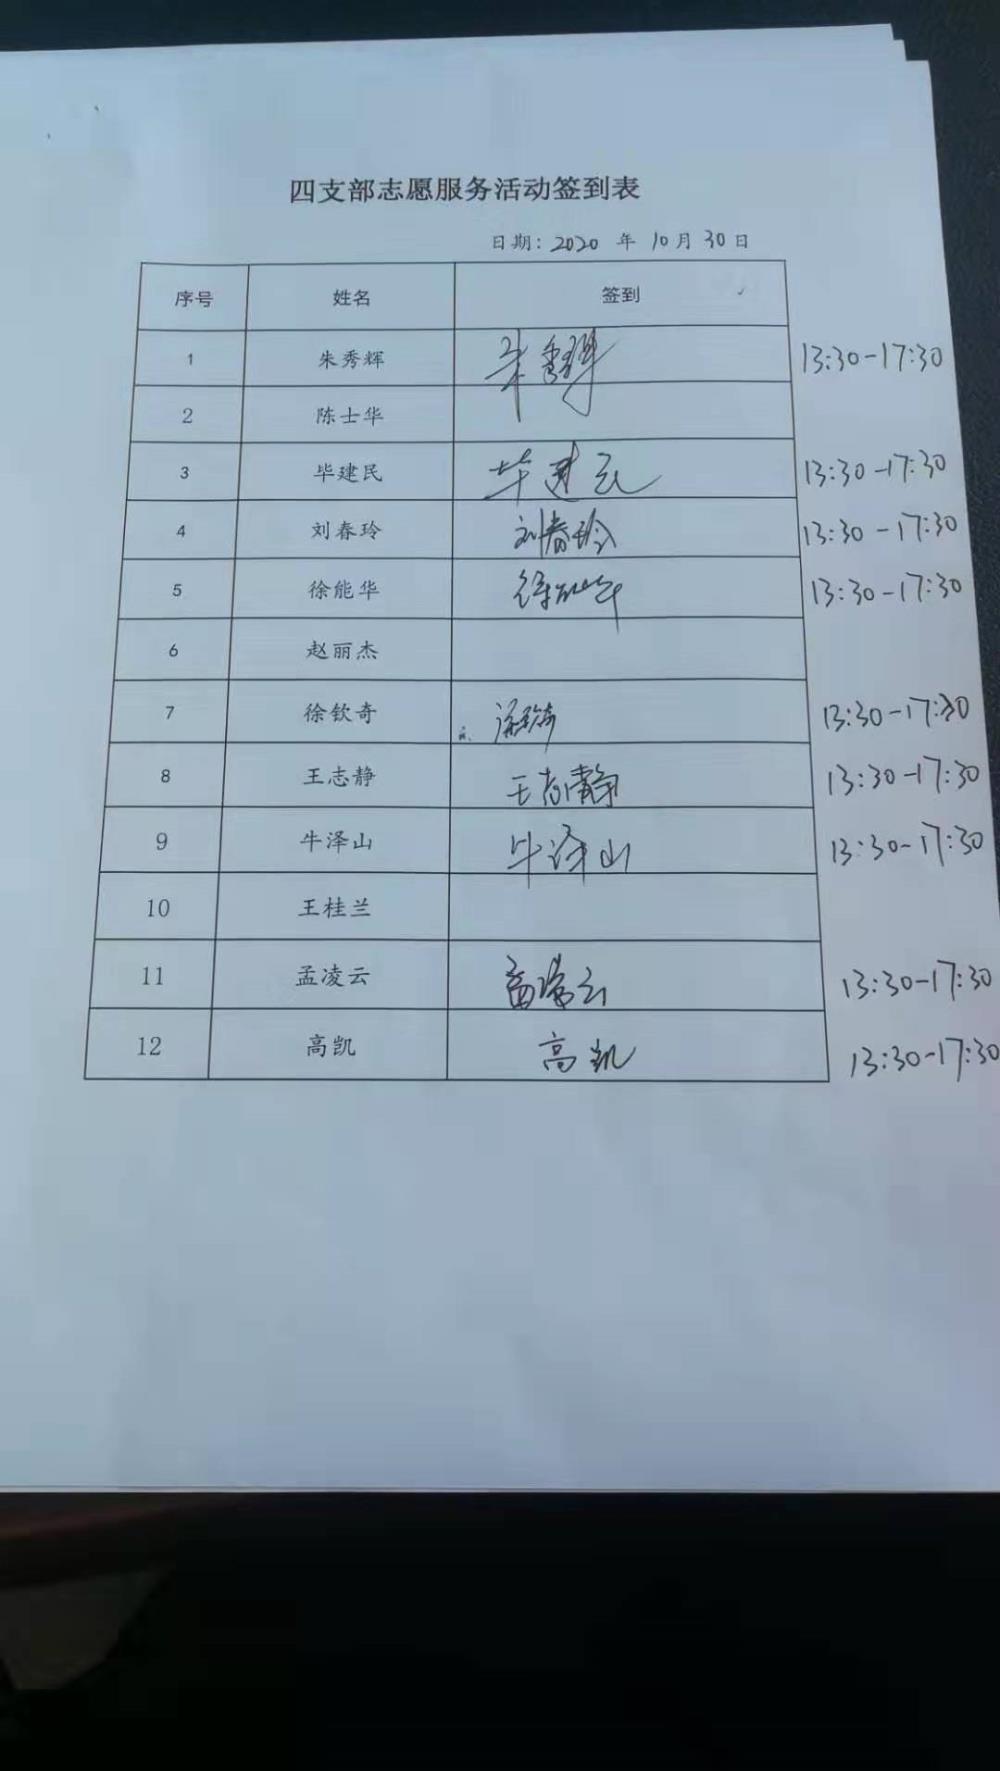 四支部志愿服务活动签到表
日期: 2020 年 10 月 30 日
序号 姓名 签到
1 朱秀辉 朱秀辉 13:30-17:30
2 陈士华
3 毕建民 毕建民 13:30-17:30
4 刘春玲 刘春玲 13:30-17:30
5 徐能华 徐能华 13:30-17:30
6 赵丽杰
7 徐钦奇 13:30-17:30
8 王志静 王志静 13:30-17:30
9 牛泽山 牛泽山 13:30-17:30
10 王桂兰
11 孟凌云 13:30-17:30
12 高凯 高凯 13:30-17:30